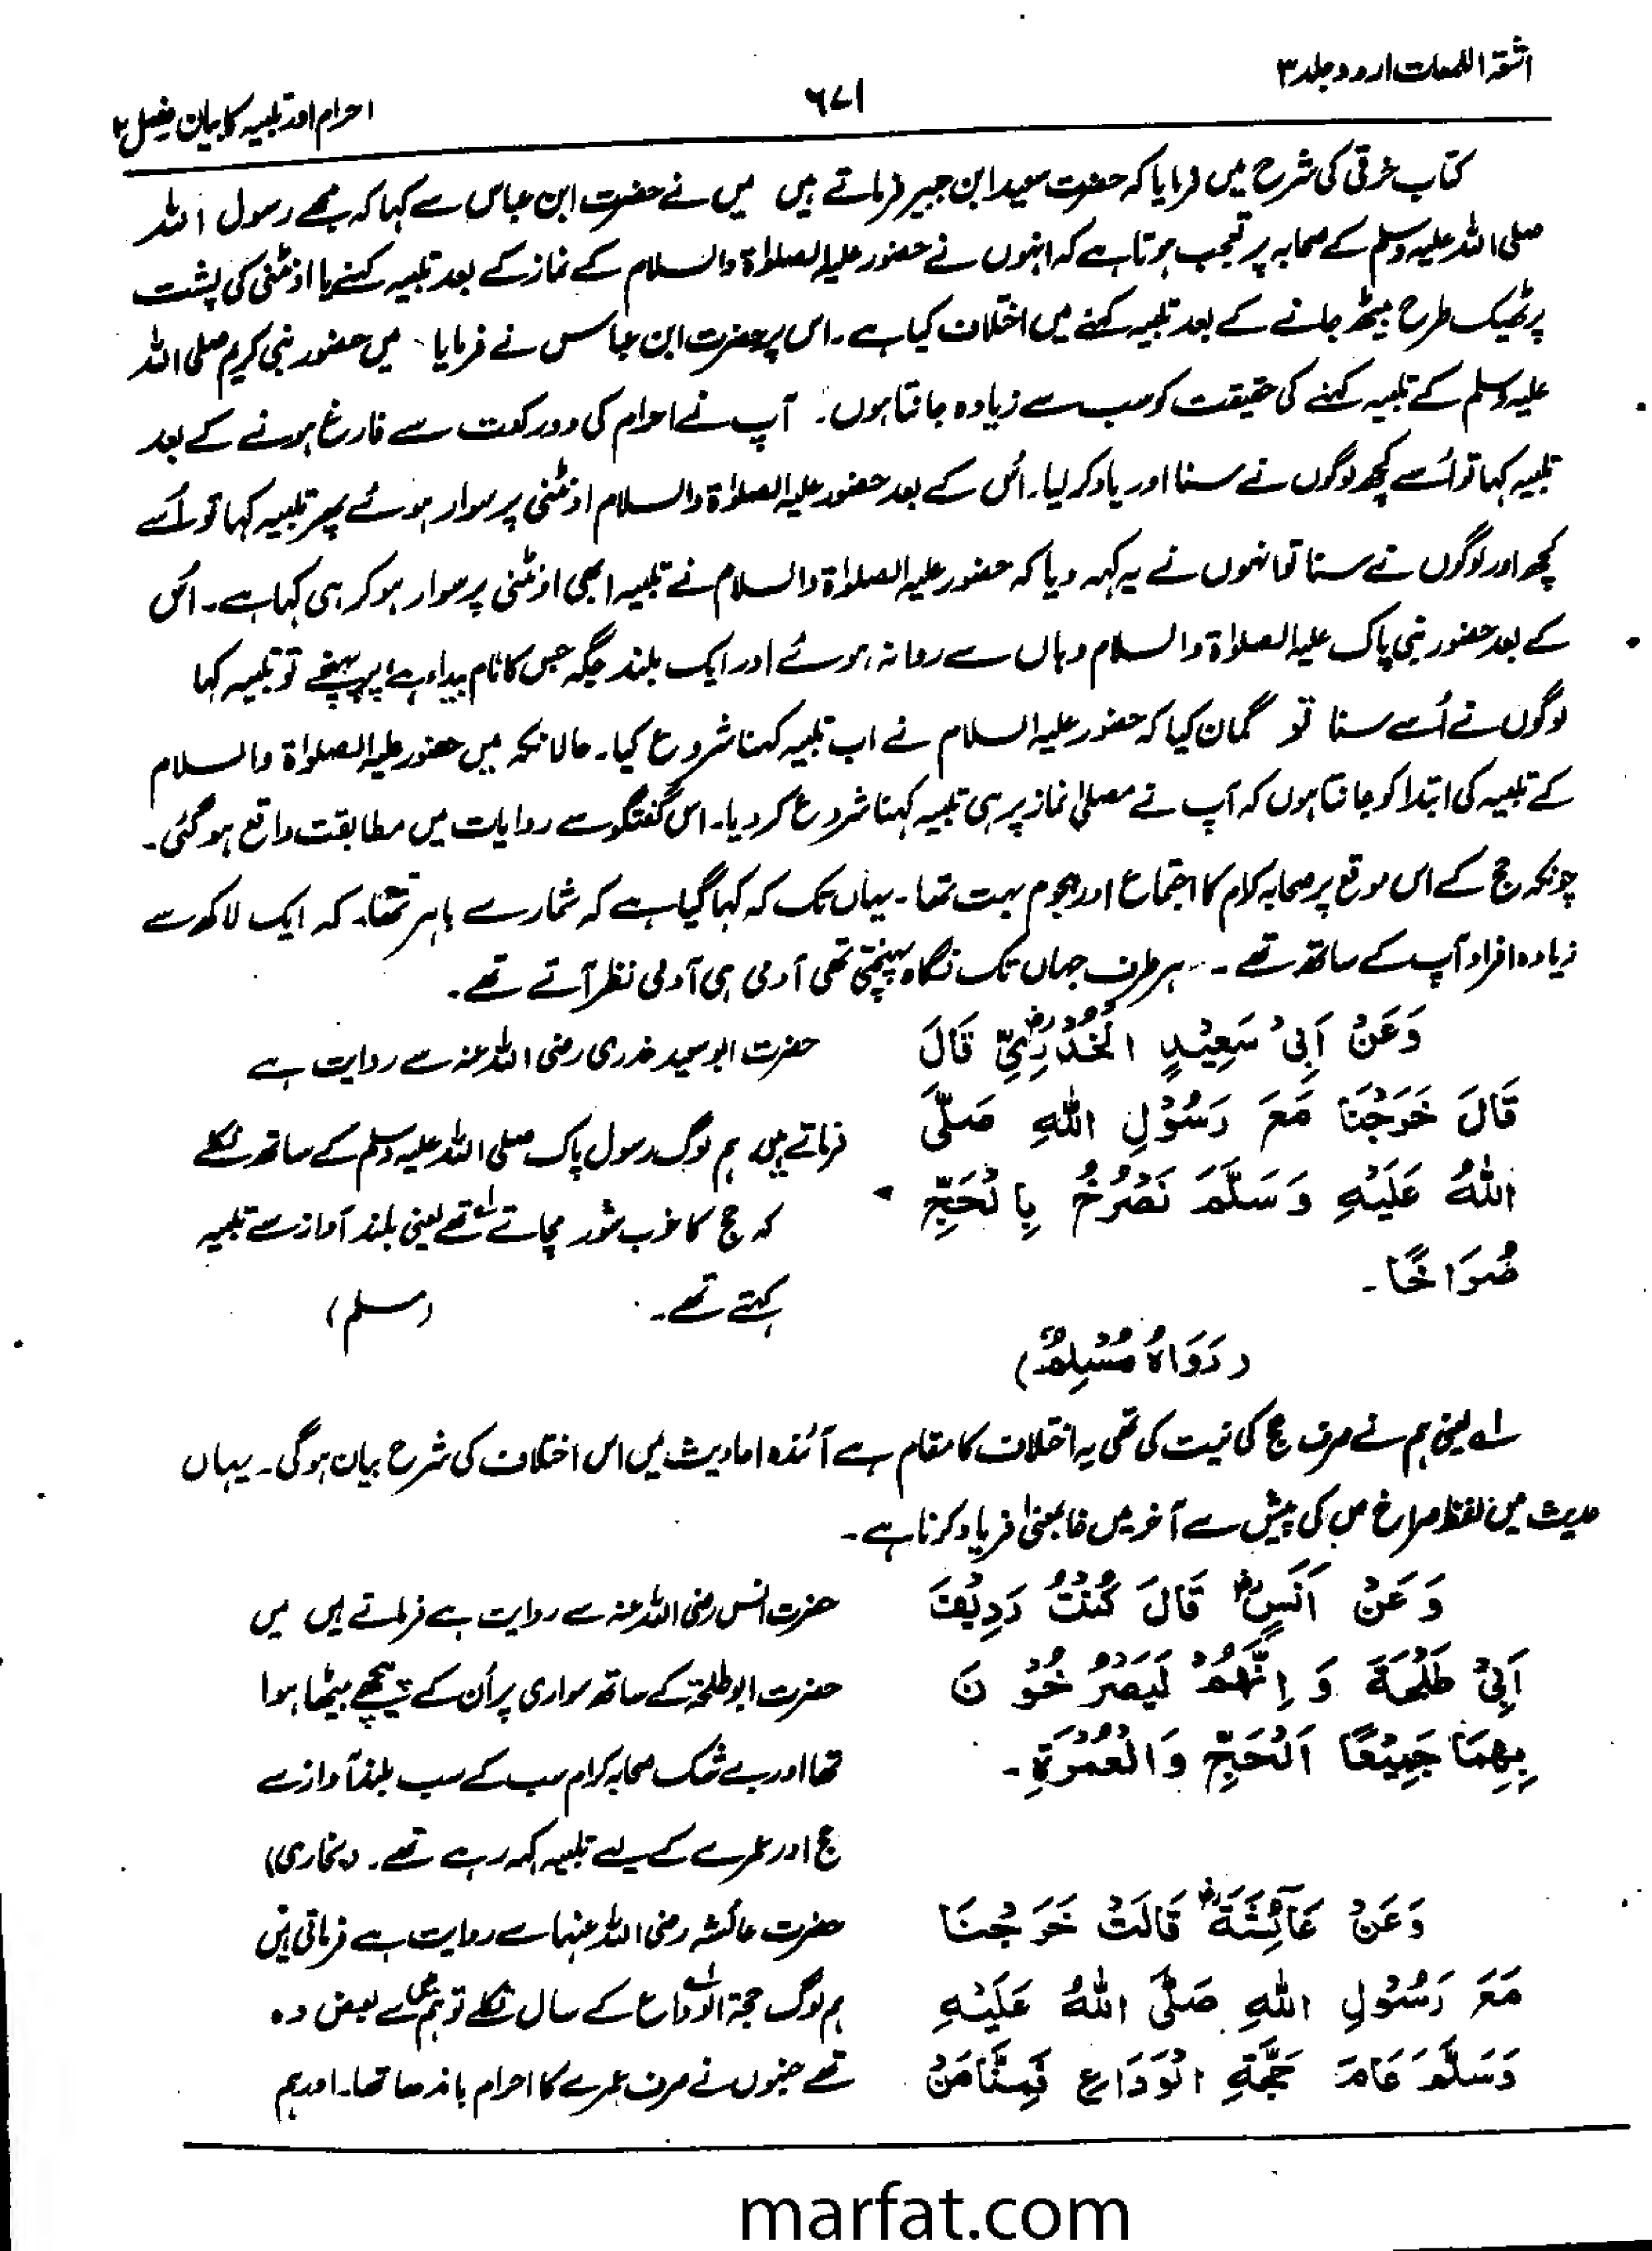 اشعۃ اللمعات اردو جلد ۳
۶۷۱
احرام اور تلبیہ کا بیان فصل ۲
کتاب خرقی کی شرح میں فرمایا کہ حضرت سعید ابن جبیر فرماتے ہیں میں نے حضرت ابن عباس سے کہا کہ مجھے رسول اللہ
صلی اللہ علیہ وسلم کے صحابہ پر تعجب ہوتا ہے کہ انہوں نے حضور علیہ الصلوٰۃ والسلام کے نماز کے بعد تلبیہ کہنے یا اونٹنی کی پشت
پر ٹھیک طرح بیٹھ جانے کے بعد تلبیہ کہنے میں اختلاف کیا ہے۔ اس پر حضرت ابن عباس نے فرمایا۔ میں حضور نبی کریم صلی اللہ
علیہ وسلم کے تلبیہ کہنے کی حقیقت کو سب سے زیادہ جانتا ہوں۔ آپ نے احرام کی دو رکعت سے فارغ ہونے کے بعد
تلبیہ کہا تو اُسے کچھ لوگوں نے سنا اور یاد کر لیا۔ اُس کے بعد حضور علیہ الصلوٰۃ والسلام اونٹنی پر سوار ہوئے پھر تلبیہ کہا تو اُسے
کچھ اور لوگوں نے سنا تو انہوں نے یہ کہہ دیا کہ حضور علیہ الصلوٰۃ والسلام نے تلبیہ ابھی اونٹنی پر سوار ہو کر ہی کہا ہے۔ اُس
کے بعد حضور نبی پاک علیہ الصلوٰۃ والسلام وہاں سے روانہ ہوئے اور ایک بلند جگہ جس کا نام بیداء ہے پر پہنچے تو تلبیہ کہا
لوگوں نے اُسے سنا تو گمان کیا کہ حضور علیہ السلام نے اب تلبیہ کہنا شروع کیا۔ حالانکہ میں حضور علیہ الصلوٰۃ والسلام
کے تلبیہ کی ابتدا کو جانتا ہوں کہ آپ نے مصلیٰ نماز پر ہی تلبیہ کہنا شروع کر دیا۔ اس گفتگو سے روایات میں مطابقت واقع ہو گئی۔
چونکہ حج کے اس موقع پر صحابہ کرام کا اجتماع اور ہجوم بہت تھا۔ یہاں تک کہ کہا گیا ہے کہ شمار سے باہر تھا۔ کہ ایک لاکھ سے
زیادہ افراد آپ کے ساتھ تھے۔ ہر طرف جہاں تک نگاہ پہنچتی تھی آدمی ہی آدمی نظر آتے تھے۔
وَعَنْ اَبِیْ سَعِیْدٍ الْخُدْرِیِّؓ قَالَ
قَالَ خَرَجْنَا مَعَ رَسُوْلِ اللهِ صَلَّی
اللهُ عَلَیْهِ وَسَلَّمَ نَصْرُخُ بِالْحَجِّ
صُرَاخًا۔
(رَوَاهُ مُسْلِمٌ)
حضرت ابو سعید خدری رضی اللہ عنہ سے روایت ہے
فرماتے ہیں، ہم لوگ رسول پاک صلی اللہ علیہ وسلم کے ساتھ نکلے
کہ حج کا خوب شور مچاتے تھے ۱ے یعنی بلند آواز سے تلبیہ
کہتے تھے۔ (مسلم)
۱ے یعنی ہم نے صرف حج کی نیت کی تھی یہ اختلاف کا مقام ہے آئندہ احادیث میں اس اختلاف کی شرح بیان ہوگی۔ یہاں
حدیث میں لفظ صراخ ص کی پیش سے آخر میں خا بمعنیٰ فریاد کرنا ہے۔
وَعَنْ اَنَسٍؓ قَالَ كُنْتُ رَدِیْفَ
اَبِیْ طَلْحَةَ وَ اِنَّهُمْ لَیَصْرُخُوْنَ
بِهِمَا جَمِیْعًا اَلْحَجِّ وَالْعُمْرَةِ۔
حضرت انس رضی اللہ عنہ سے روایت ہے فرماتے ہیں میں
حضرت ابو طلحۃ کے ساتھ سواری پر اُن کے پیچھے بیٹھا ہوا
تھا اور بے شک صحابہ کرام سب کے سب بلند آواز سے
حج اور عمرے کے لیے تلبیہ کہہ رہے تھے۔ (بخاری)
وَعَنْ عَآئِشَةَؓ قَالَتْ خَرَجْنَا
مَعَ رَسُوْلِ اللهِ صَلَّی اللهُ عَلَیْهِ
وَسَلَّمَ عَامَ حَجَّةِ الْوَدَاعِ فَمِنَّا مَنْ
حضرت عائشہ رضی اللہ عنہا سے روایت ہے فرماتی ہیں
ہم لوگ حجۃ الوداع ۱ے کے سال نکلے تو ہم میں سے بعض وہ
تھے جنہوں نے صرف عمرے کا احرام باندھا تھا۔ اور ہم
marfat.com